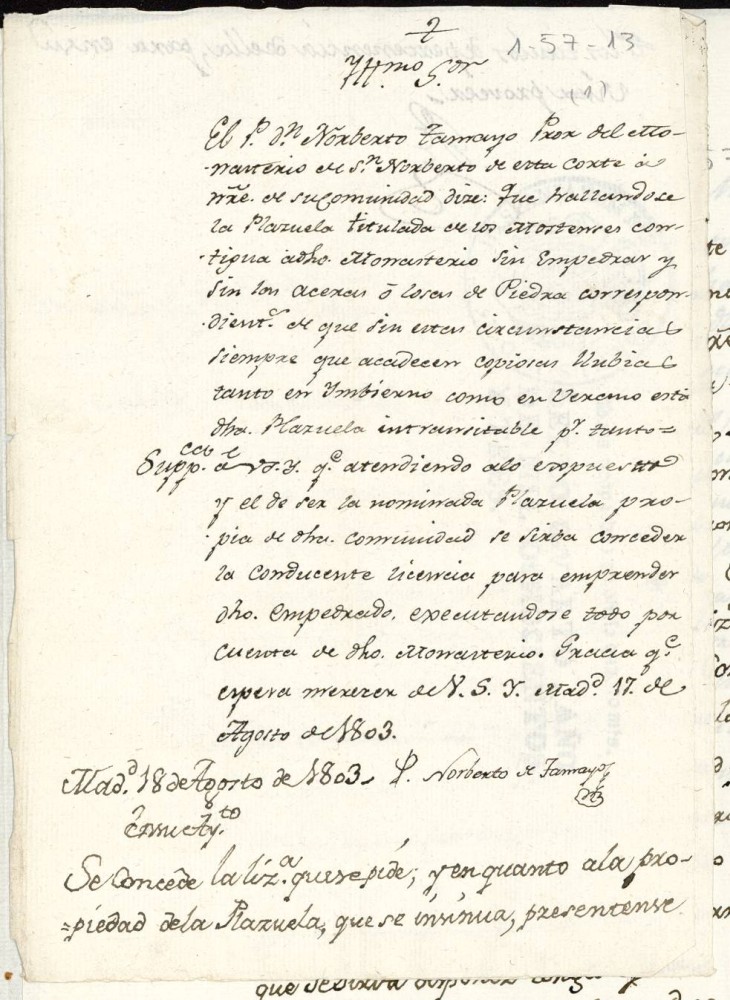 1-57-13
Yll.mo S.or
El P. d.n Norberto Tamayo Pror del Mo-
-nasterio de S.n Norberto de esta Corte à
nre. de su comunidad dize: Que hallandose
la Plazuela titulada de los Mostenses con-
-tigua a dho. Monasterio sin Empedrar y
sin las aceras ò losas de Piedra correspon-
-dient.s de que sin estas circunstancias
siempre que acadecen copiosas llubias
tanto en Ymbierno como en Verano está
dha. Plazuela intransitable p.r tanto=
Supp.ca à V.S.Y. q.e atendiendo alo expuesto
y el de ser la nominada Plazuela pro-
-pia de dha. comunidad se sirba conceder
la conducente licencia para emprender
dho. empedrado, executandose todo por
cuenta de dho. Monasterio. Gracia q.e
espera merezer de V. S. Y. Mad.d 17. de
Agosto de 1803.
P. Norberto de Tamayo
Mad.d 18 de Agosto de 1803.
En su Ay.to
Se Concede la liz.a que se pide; y en quanto a la pro-
=piedad de la Plazuela, que se insinua, presentense
que se sirva disponer